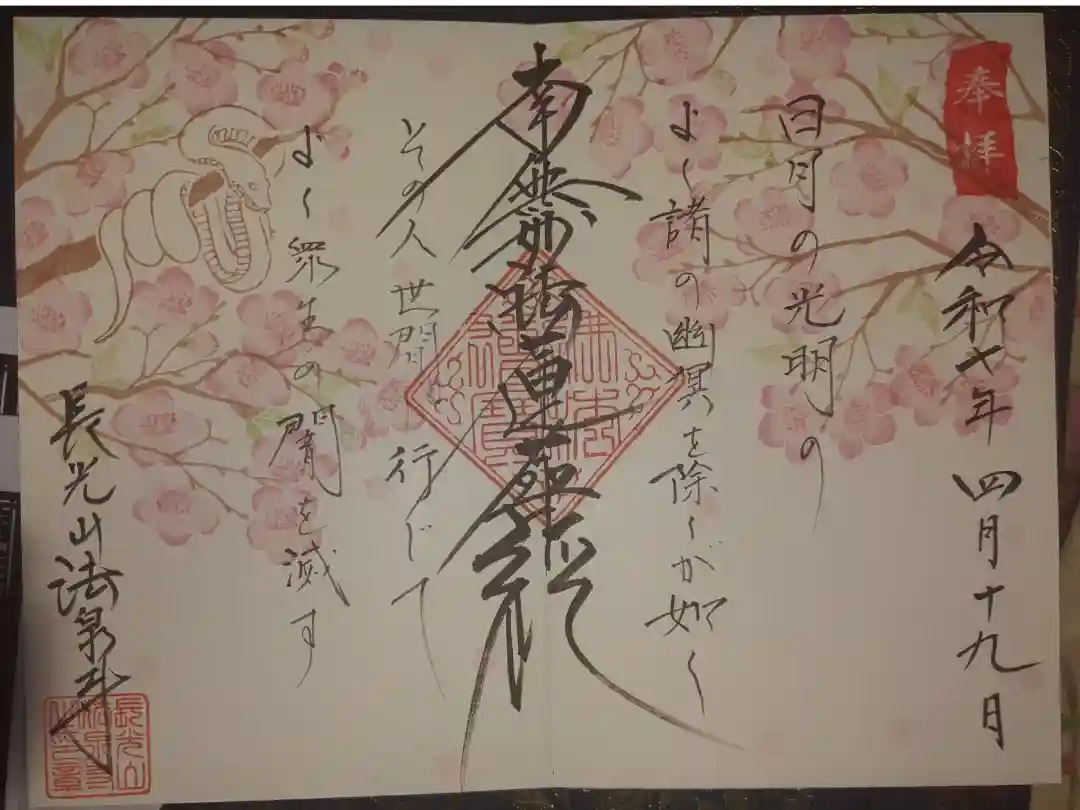 奉拝
令和七年 四月十九日
日月の光明の
よく諸の幽冥を除くが如く
南無妙法蓮華経
その人世間 行じて
よく衆生の闇を滅す
長光山法泉寺
長光山
法泉寺
之印章